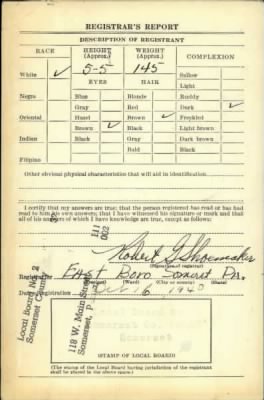 REGISTRAR'S REPORT
DESCRIPTION OF REGISTRANT
RACE HEIGHT (Approx.) WEIGHT (Approx.) COMPLEXION
White ✓ 5-5 145 Sallow
EYES HAIR Light
Negro Blue Blonde Ruddy
Gray Red Dark ✓
Oriental Hazel Brown ✓ Freckled
Brown ✓ Black Light brown
Indian Black Gray Dark brown
Bald Black
Filipino
Other obvious physical characteristics that will aid in identification
I certify that my answers are true; that the person registered has read or has had
read to him his own answers; that I have witnessed his signature or mark and that
all of his answers of which I have knowledge are true, except as follows:
111
002
Robert G Shoemaker
(Signature of registrar)
Registrar for East Boro Somerset Pa.
(Precinct) (Ward) (City or county) (State)
Date of registration Oct 16, 1940
Local Board No. 2
Somerset County
118 W. Main Street
Somerset, Pa.
(STAMP OF LOCAL BOARD)
(The stamp of the Local Board having jurisdiction of the registrant
shall be placed in the above space.)